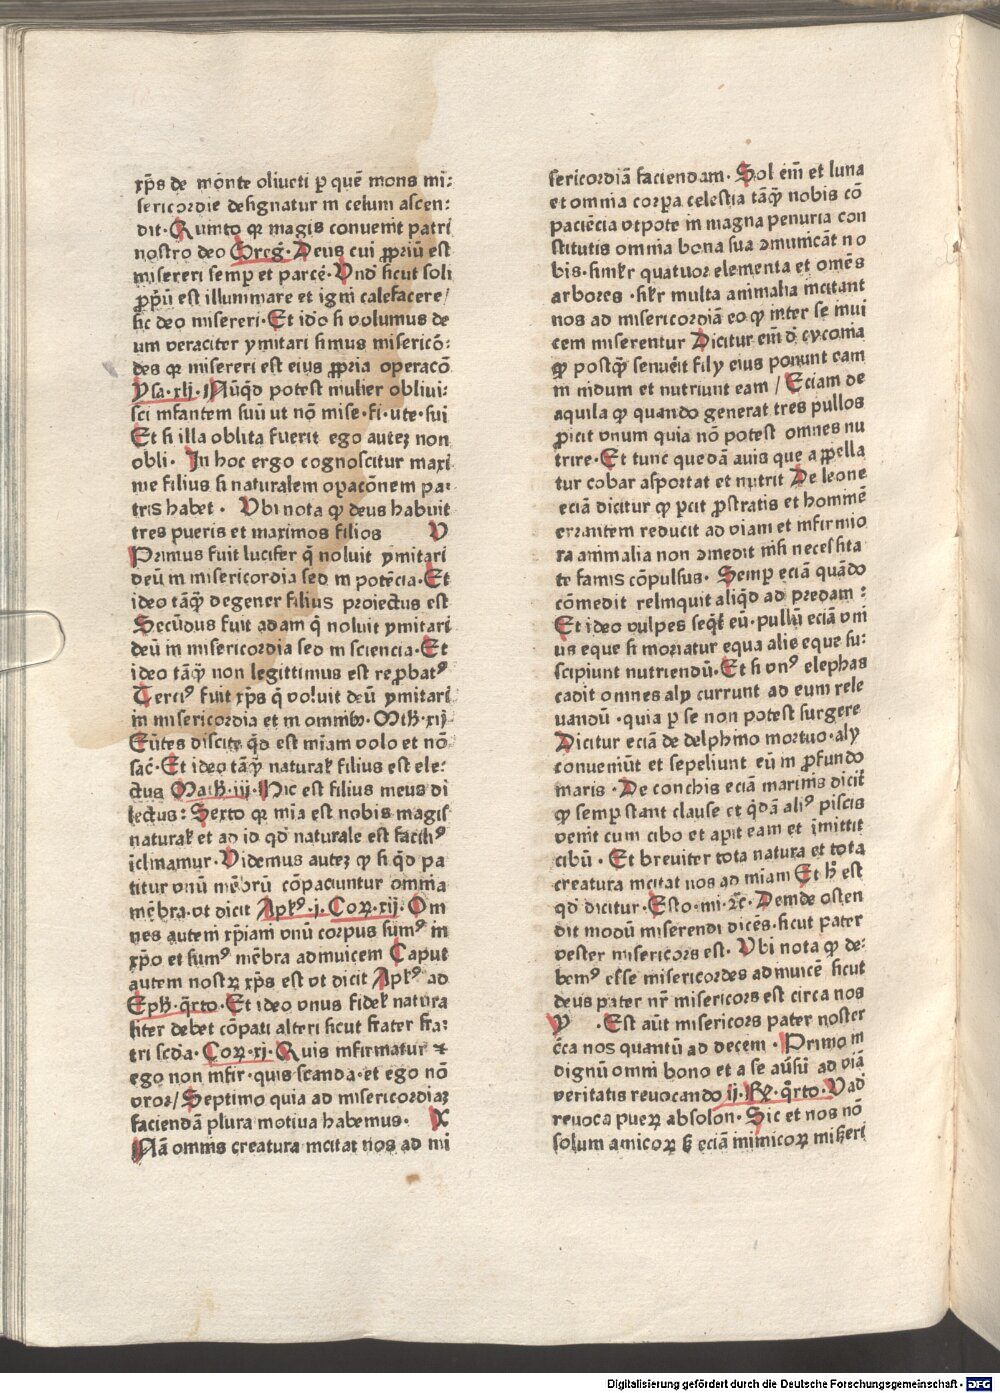 xp̄s de monte oliueti p̱ quē mons mi:
sericordie designatur in celum ascen:
dit · Quinto qꝛ magis conuenit patri
nostro deo Greḡ · Deus cui ꝓpriū est
misereri semp̱ et parcē · Vnd̄ sicut soli
ꝓpriū est illuminare et igni calefacere /
sic deo misereri · Et id̄o si volumus de
um veraciter ymitari simus misericō:
des qꝛ misereri est eius ꝓpria operacō
ysa · xlj · Nūq̄d potest mulier obliui:
sci infantem suū ut nō mise · fi · ute · sui
Et si illa oblita fuerit ego auteꝫ non
obli · In hoc ergo cognoscitur maxi
me filius si naturalem op̱acōnem pa:
tris habet · Vbi nota ꝙ deus habuit
tres pueris et maximos filios V
Primus fuit lucifer q̄ noluit ymitari
deū in misericordia sed in potēcia · Et
ideo tāꝙ̄ degener filius proiectus est
Secūdus fuit adam q̄ noluit ymitari
deū in misericordia sed in sciencia · Et
ideo tāꝙ̄ non legittimus est reꝓbatꝰ
Terciꝰ fuit xp̄s q̄ voluit deū ymitari
in misericordia et in omnibꝰ · Mtħ · xij
Eūtes discite q̄d est mīam volo et nō
sac̄ · Et ideo tāꝙ̄ naturał filius est ele:
ctus Matħ · iij · Hic est filius meus di
lectus : Sexto qꝛ mīa est nobis magis
naturał et ad id qd̄ naturale est faciliꝰ
īclinamur · Videmus auteꝫ ꝙ si q̄d pa
titur vnū mēbrū cōpaciuntur omnia
mēbra · vt dicit Apłꝰ · j · Coꝝ · xij · Om
nes autem xp̄iani vnū corpus sumꝰ in
xp̄o et sumꝰ mēbra adinuicem Caput
autem nostꝝ xp̄s est vt dicit Apłꝰ ad
Epħ · q̄rto · Et ideo vnus fidel̄ natura
liter debet cōpati alteri sicut frater fra:
tri scd̄a · Coꝝ · xj · Quis infirmatur ⁊
ego non infir · quis scanda · et ego nō
vror / Septimo quia ad misericordiaꝫ
faciendā plura motiua habemus · X
Nā omnis creatura incitat nos ad mi
sericordiā faciendam · Sol em̄ et luna
et omnia corp̱a celestia tāꝙ̄ nobis cō
paciēcia vtpote in magna penuria con
stitutis omnia bona sua ꝯmunicāt no
bis · simiłr quatuor elementa et omēs
arbores · siłr multa animalia incitant
nos ad misericordiā eo ꝙ inter se inui
cem miserentur Dicitur em̄ d̄ cyconia
ꝙ postꝙ̄ senuēit filij eius ponunt eam
in nidum et nutriunt eam / Eciam de
aquila ꝙ quando generat tres pullos
ꝓicit vnum quia nō potest omnes nu
trire · Et tunc quedā auis que appella
tur cobar asportat et nutrit De leone
eciā dicitur ꝙ p̱cit ꝓstratis et hominē
errantem reducit ad viam et infirmio
ra animalia non ꝯmedit nisi necessita
te famis cōpulsus · Semp̱ eciā quādo
cōmedit relinquit aliq̄d ad predam :
Et ideo vulpes seq̄t̄ eū · pullū eciā vni
us eque si moriatur equa alis eque su:
scipiunt nutriendū · Et si vnꝰ elephas
cadit omnes alij currunt ad eum rele
uandū · quia p̱ se non potest surgere
Dicitur eciā de delphino mortuo · alij
conueniūt et sepeliunt eū in ꝓfundo
maris · De conchis eciā marinis dicit̄
ꝙ semp̱ stant clause et q̄dā aliꝰ piscis
venit cum cibo et ap̱it eam et īmittit
cibū · Et breuiter tota natura et tota
creatura incitat nos ad mīam Et ħ est
qd̄ dicitur · Esto · mi · ꝛc̄ · Deinde osten
dit modū miserendi dicēs · sicut pater
vester misericors est · Vbi nota ꝙ de:
bemꝰ esse misericordes adinuicē sicut
deus pater nr̄ misericors est circa nos
y · Est aūt misericors pater noster
c̄ca nos quantū ad decem · Primo in
dignū omni bono et a se aūsū ad viā
veritatis reuocando ij · Rꝫ · q̄rto · Vad
reuoca pueꝝ absolon · Sic et nos nō
solum amicoꝝ sꝫ eciā inimicoꝝ miseri